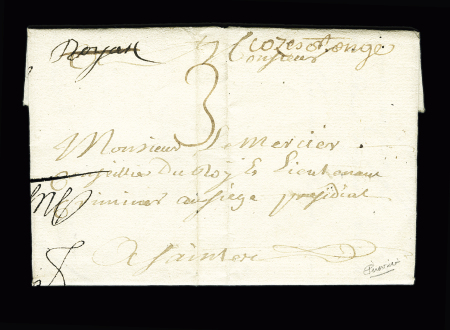 Royan
Monsieur
3
Monsieur Mercier
Conseiller Du Roy & Lieutenant
Criminel au siege presidial
A Saintes